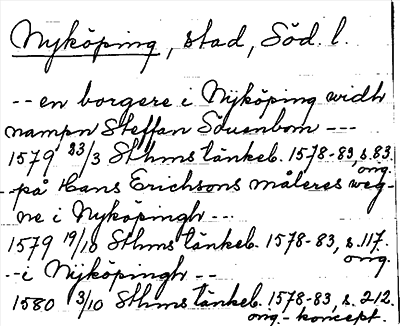 Nyköping, stad, Söd. l.
-- en borgere i Nyköping widh
nampn Steffan Souenbom ---
1579 23/3 Sthms tänkeb. 1578-83, s. 83.
orig.
-- på Hans Erichsons måleres weg-
ne i Nyköpingh --
1579 19/10 Sthms tänkeb. 1578-83, s. 117.
orig.
-- i Nyköpingh --
1580 3/10 Sthms tänkeb. 1578-83, s. 212.
orig.- koncept.